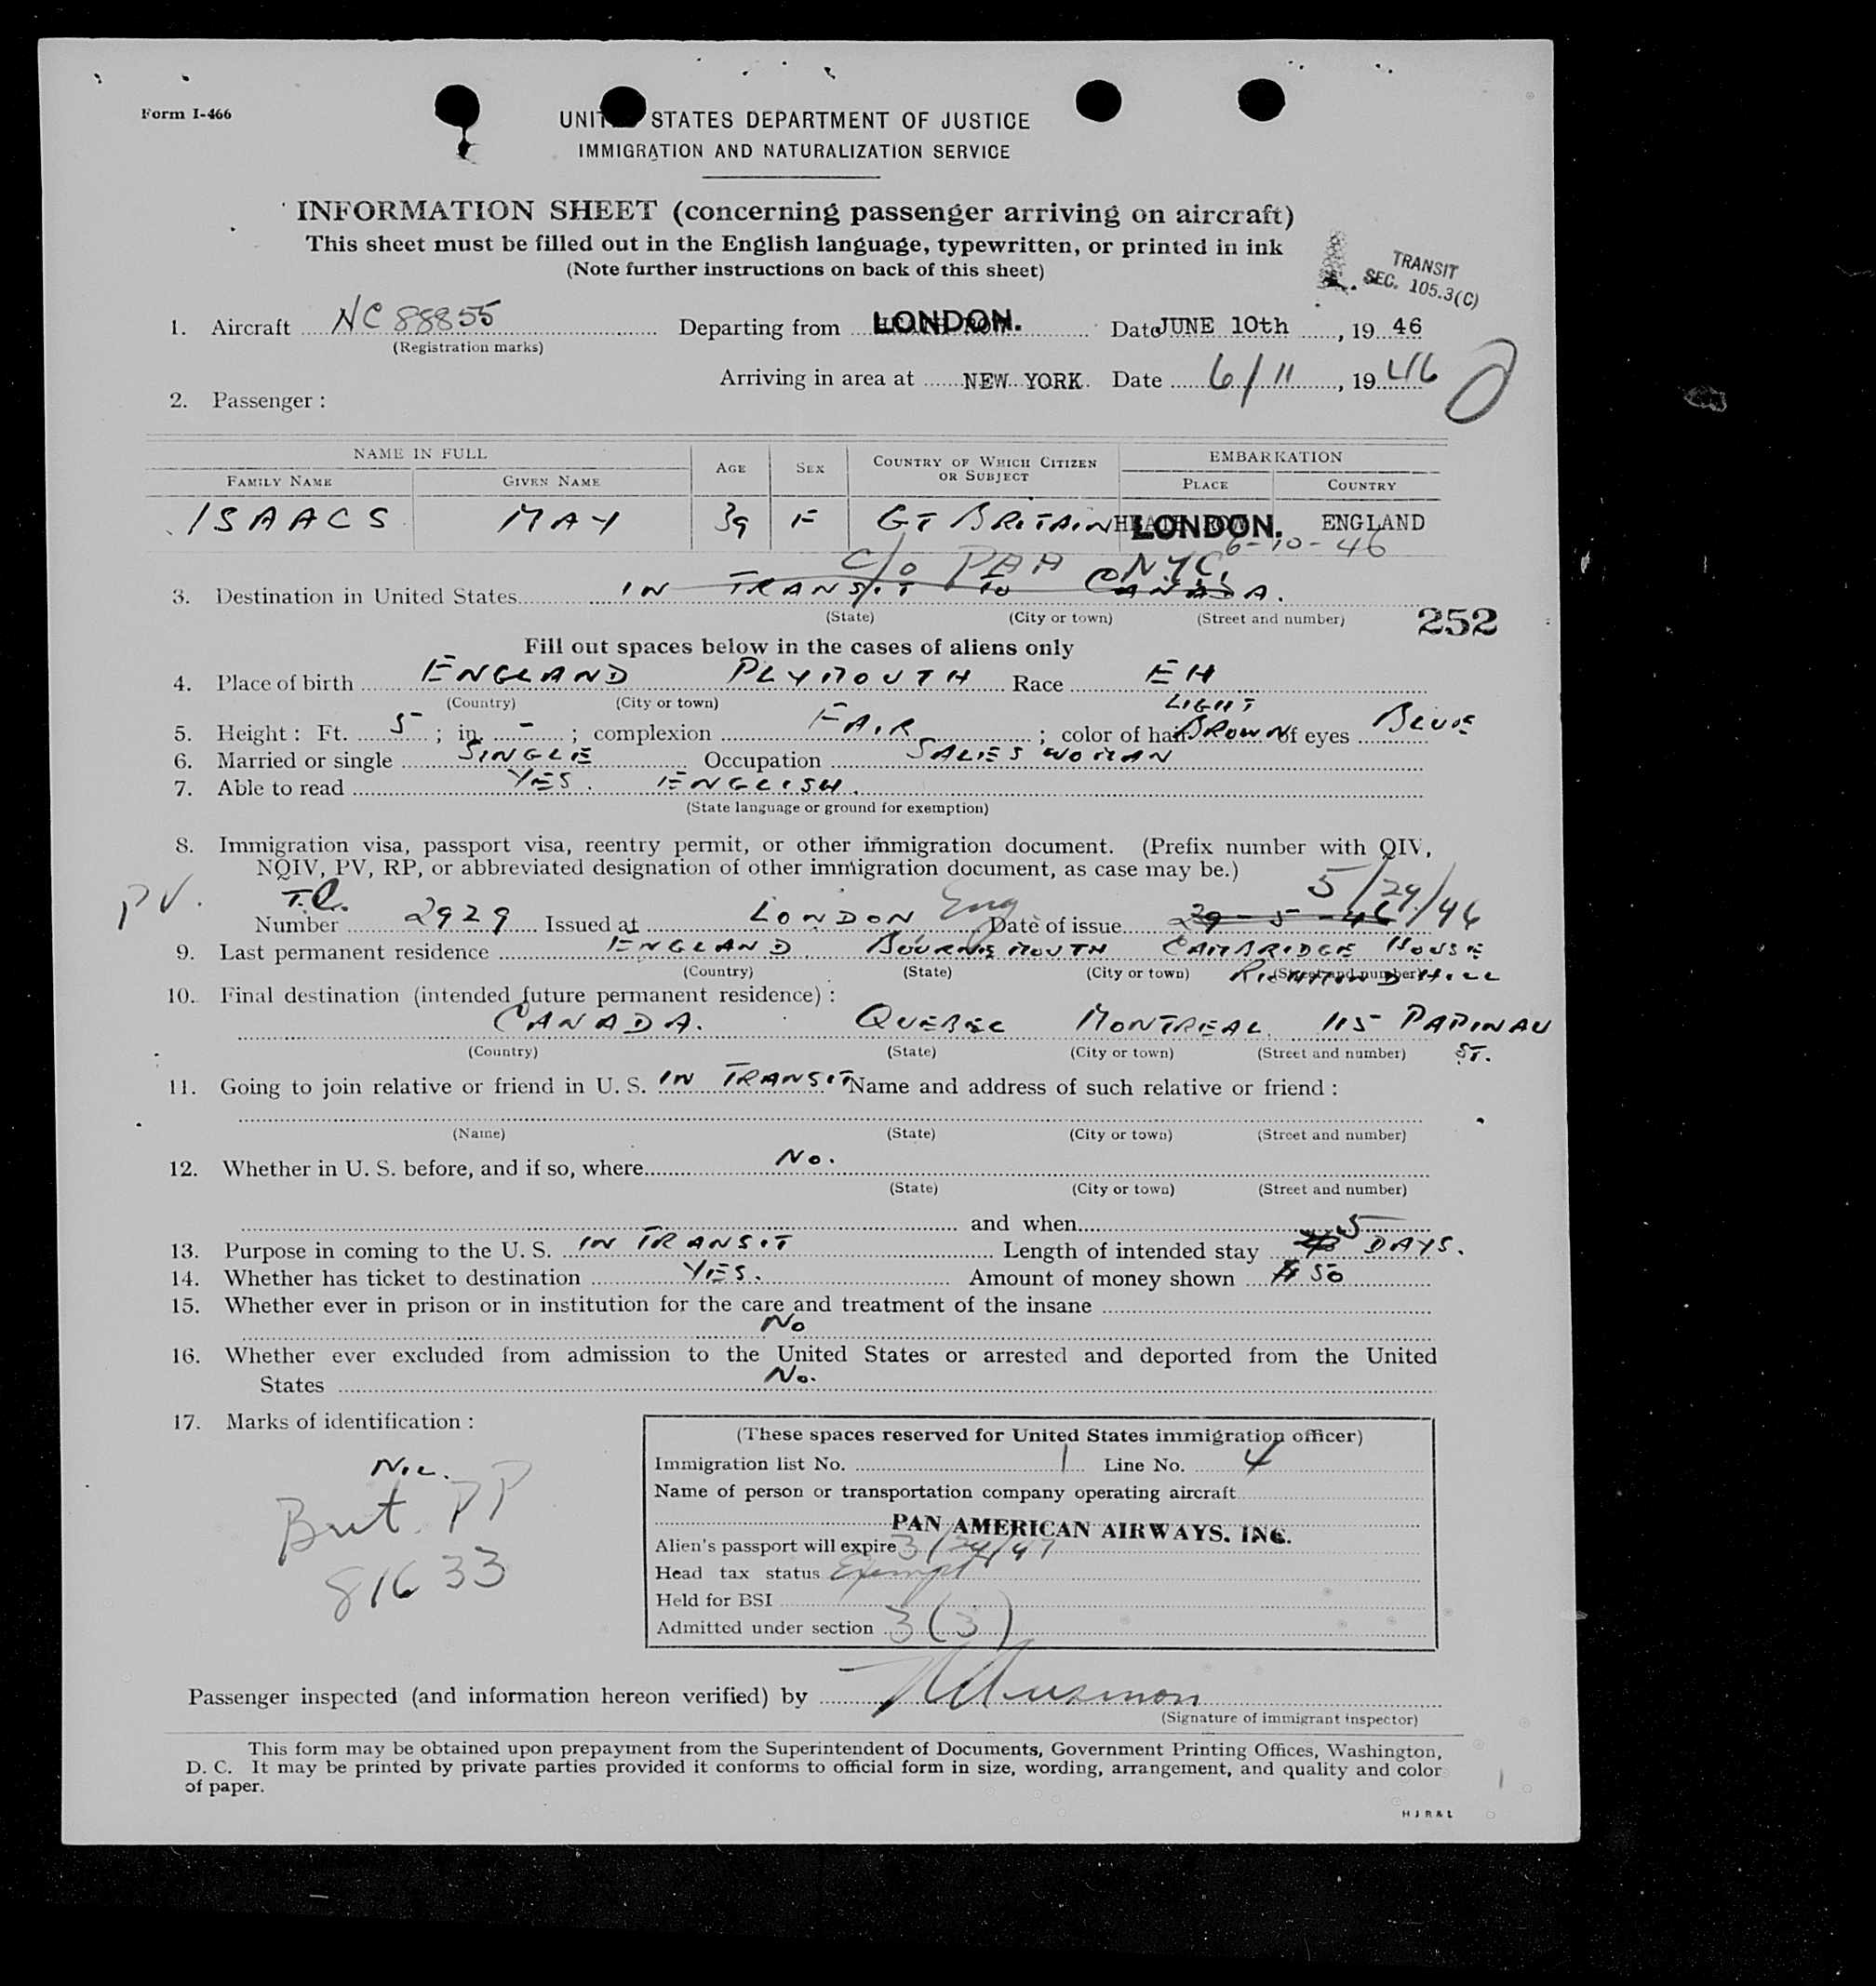 Form I-466
UNITED STATES DEPARTMENT OF JUSTICE
IMMIGRATION AND NATURALIZATION SERVICE
INFORMATION SHEET (concerning passenger arriving on aircraft)
This sheet must be filled out in the English language, typewritten, or printed in ink
(Note further instructions on back of this sheet)
TRANSIT
SEC. 105.3(C)
1. Aircraft NC 88855 Departing from LONDON. Date JUNE 10th, 19 46
(Registration marks)
Arriving in area at NEW YORK Date 6/11, 19 46
2. Passenger :
NAME IN FULL AGE SEX COUNTRY OF WHICH CITIZEN OR SUBJECT EMBARKATION
FAMILY NAME GIVEN NAME PLACE COUNTRY
ISAACS MAY 39 F GT BRITAIN LONDON. ENGLAND
6-10-46
c/o PAA NYC.
3. Destination in United States IN TRANSIT TO CANADA.
(State) (City or town) (Street and number)
252
Fill out spaces below in the cases of aliens only
4. Place of birth ENGLAND PLYMOUTH Race EH
(Country) (City or town)
LIGHT
5. Height : Ft. 5 ; in. - ; complexion FAIR ; color of hair BROWN of eyes BLUE
6. Married or single SINGLE Occupation SALESWOMAN
7. Able to read YES. ENGLISH.
(State language or ground for exemption)
8. Immigration visa, passport visa, reentry permit, or other immigration document. (Prefix number with QIV,
NQIV, PV, RP, or abbreviated designation of other immigration document, as case may be.)
PV. T.C. 5/29/46
Number 2929 Issued at LONDON Eng Date of issue 29-5-46
9. Last permanent residence ENGLAND BOURNEMOUTH CAMBRIDGE HOUSE
(Country) (State) (City or town) (Street and number) RICHMOND HILL
10. Final destination (intended future permanent residence) :
CANADA. QUEBEC MONTREAL. 115 PAPINAU
(Country) (State) (City or town) (Street and number) ST.
11. Going to join relative or friend in U. S. IN TRANSIT Name and address of such relative or friend :
(Name) (State) (City or town) (Street and number)
12. Whether in U. S. before, and if so, where No.
(State) (City or town) (Street and number)
and when
13. Purpose in coming to the U. S. IN TRANSIT Length of intended stay 5 DAYS.
14. Whether has ticket to destination YES. Amount of money shown $ 50
15. Whether ever in prison or in institution for the care and treatment of the insane
No
16. Whether ever excluded from admission to the United States or arrested and deported from the United
States No.
17. Marks of identification :
Nil.
Brit. PP
81633
(These spaces reserved for United States immigration officer)
Immigration list No. 1 Line No. 4
Name of person or transportation company operating aircraft
PAN AMERICAN AIRWAYS. INC.
Alien's passport will expire 3/24/47
Head tax status Exempt
Held for BSI
Admitted under section 3 (3)
Passenger inspected (and information hereon verified) by
(Signature of immigrant inspector)
This form may be obtained upon prepayment from the Superintendent of Documents, Government Printing Offices, Washington,
D. C. It may be printed by private parties provided it conforms to official form in size, wording, arrangement, and quality and color
of paper.
H J R & L